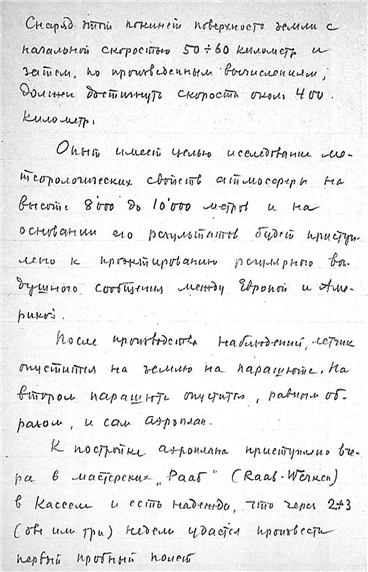 Снаряд этот покинет поверхность земли с
начальной скоростью 50÷60 километр. и
затем, по произведенным вычислениям,
должен достигнуть скорость около 400
километр.
Опыт имеет целью исследование ме-
теорологических свойств атмосферы на
высоте 8'000 до 10'000 метров и на
основании его результатов будет присту-
лено к проэктированию регулярного воз-
душного сообщения между Европой и Аме-
рикой.
После производства наблюдений, летчик
опустится на землю на парашюте. На
втором парашюте опустится, равным об-
разом, и сам аэроплан.
К постройке аэроплана приступлено вче-
ра в мастерских „Рааб" (Raab-Werken)
в Касселе и есть надежда, что через 2÷3
(две или три) недели удастся произвести
первый пробный полет